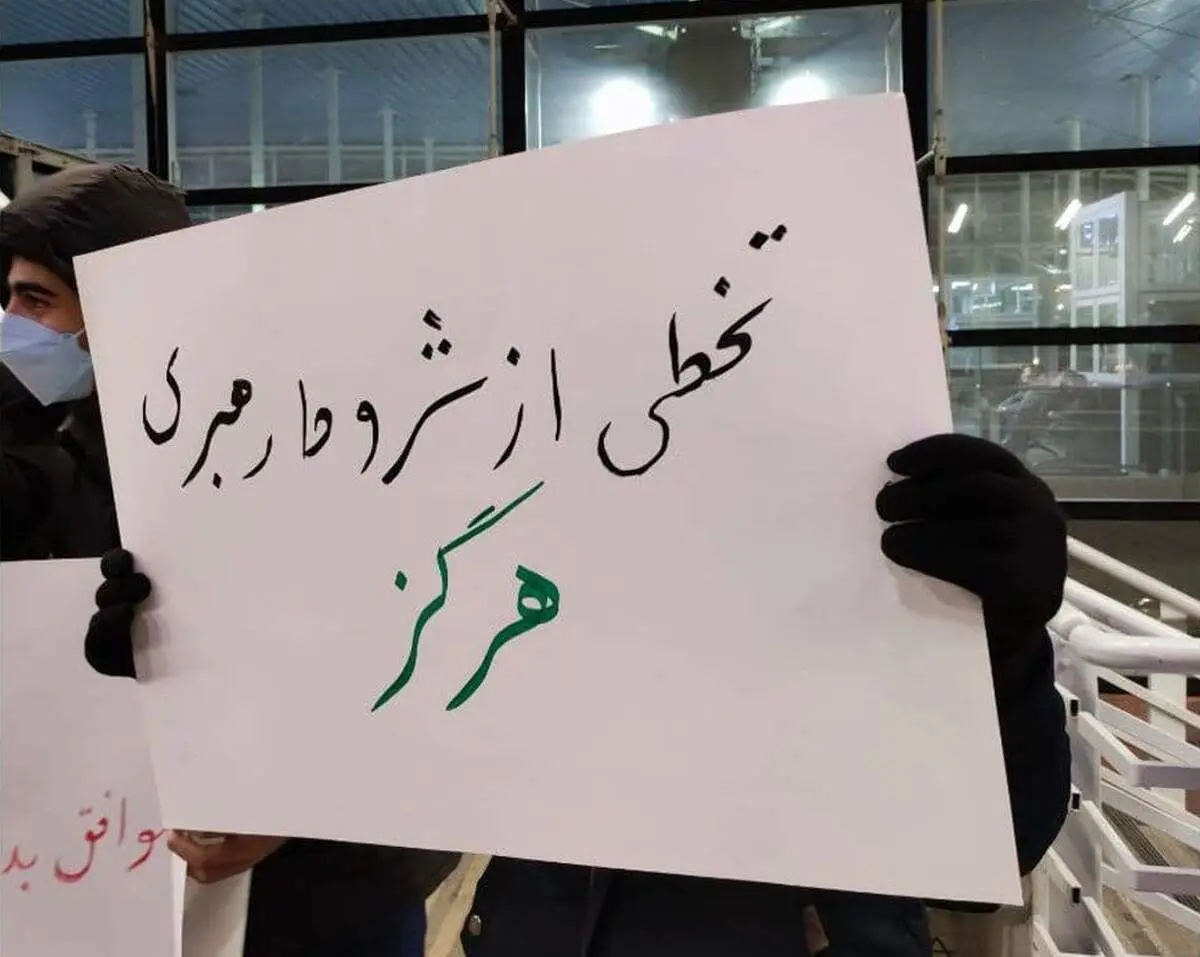 تخطی از شروط رهبری
هرگز
توافق بد